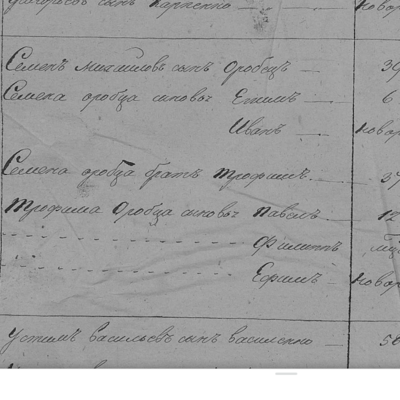 сынъ Карпенко
Семенъ Михайловъ сынъ Оробецъ 39
Семена Оробца сыновья Ефимъ 6
Иванъ новор
Семена Оробца братъ Трофимъ 37
Трофима Оробца сыновья Павелъ 12
Филиппъ
Ефимъ новор
Устимъ Васильевъ сынъ Василенко 58